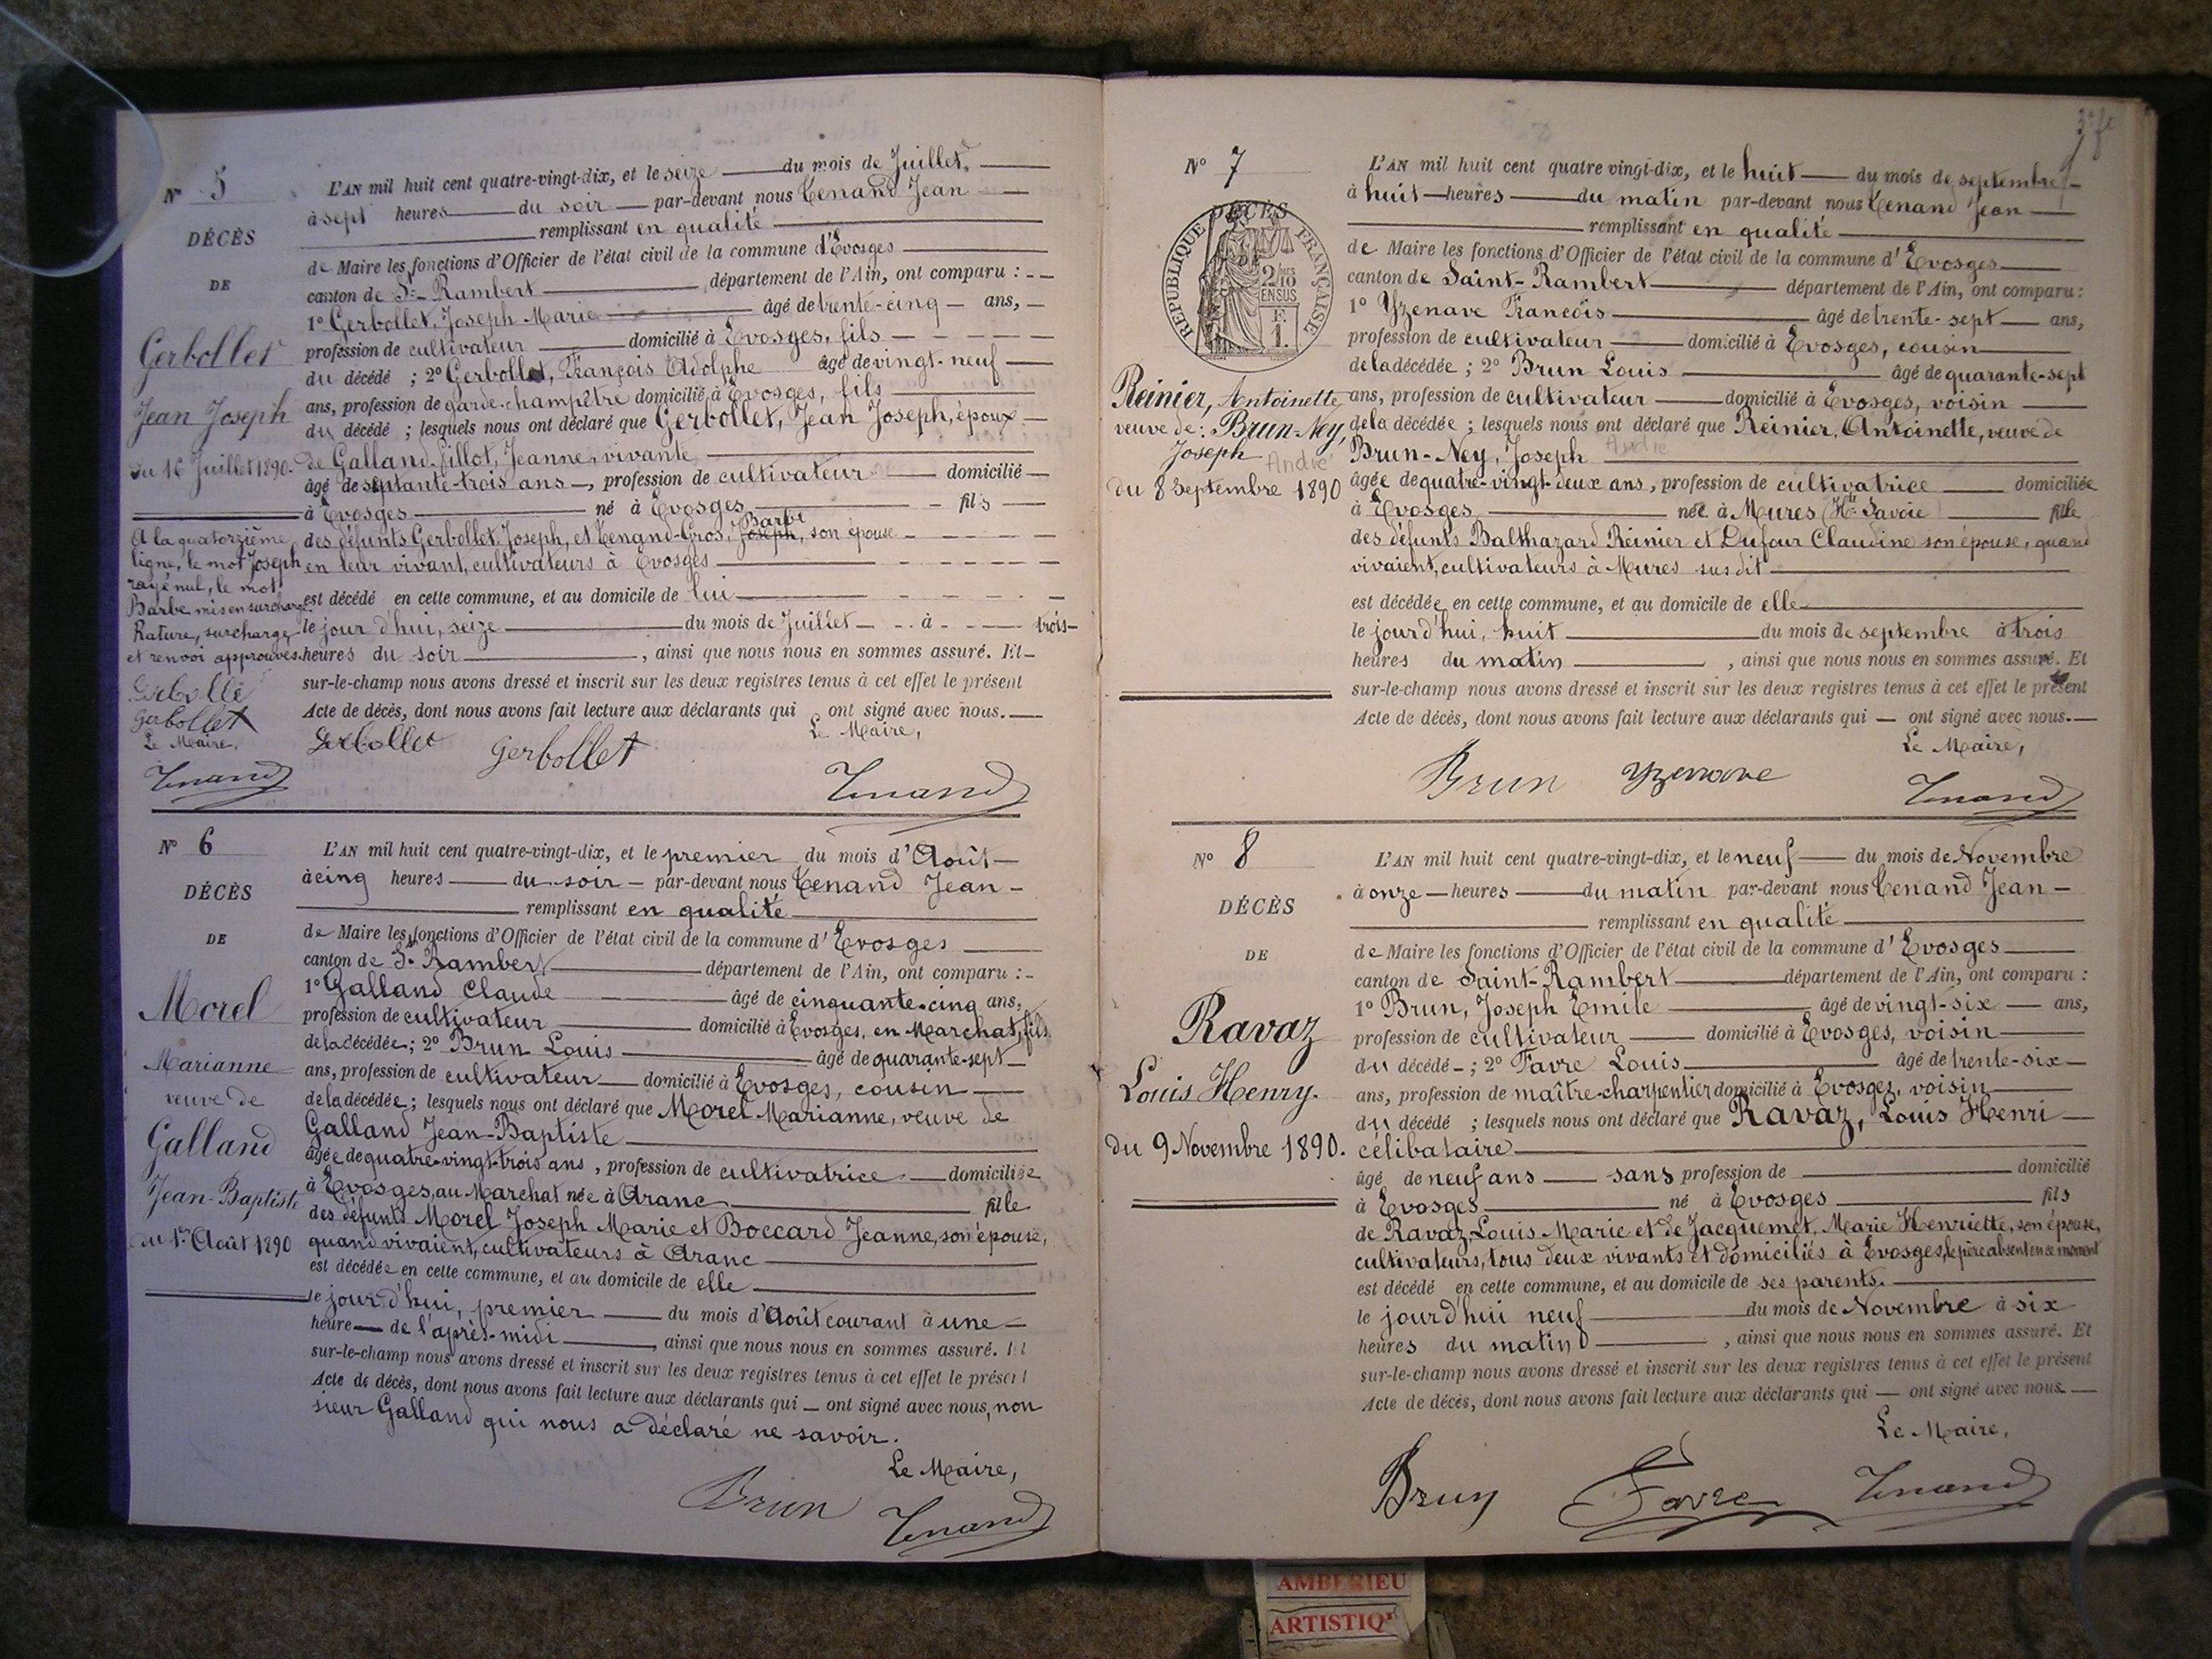 N° 5
DÉCÈS
DE
Gerbollet
Jean Joseph
du 16 Juillet 1890.
A la quatorzième
ligne, le mot Joseph
rayé nul, le mot
Barbe mis en surcharge
Rature, surcharge
et renvoi approuvés.
Gerbollet
Gerbollet
Le Maire,
Tenand
L'AN mil huit cent quatre-vingt-dix, et le seize du mois de Juillet,
à sept heures du soir par-devant nous Tenand Jean
remplissant en qualité
de Maire les fonctions d'Officier de l'état civil de la commune d'Evosges
canton de St Rambert département de l'Ain, ont comparu :
1° Gerbollet, Joseph Marie âgé de trente-cinq ans,
profession de cultivateur domicilié à Evosges, fils
du décédé ; 2° Gerbollet, François Adolphe âgé de vingt-neuf
ans, profession de garde-champêtre domicilié à Evosges, fils
du décédé ; lesquels nous ont déclaré que Gerbollet, Jean Joseph, époux
de Galland-fillot, Jeanne, vivante
âgé de septante-trois ans, profession de cultivateur domicilié
à Evosges né à Evosges fils
Barbe
des défunts Gerbollet Joseph, et Tenand-Gros, Joseph, son épouse
en leur vivant, cultivateurs à Evosges
est décédé en cette commune, et au domicile de lui
le jour d'hui, seize du mois de Juillet à trois
heures du soir, ainsi que nous nous en sommes assuré. Et
sur-le-champ nous avons dressé et inscrit sur les deux registres tenus à cet effet le présent
Acte de décès, dont nous avons fait lecture aux déclarants qui ont signé avec nous.
Le Maire,
Gerbollet Gerbollet Tenand
N° 6
DÉCÈS
DE
Morel
Marianne
veuve de
Galland
Jean-Baptiste
du 1er Août 1890
L'AN mil huit cent quatre-vingt-dix, et le premier du mois d'Août
à cinq heures du soir par-devant nous Tenand Jean
remplissant en qualité
de Maire les fonctions d'Officier de l'état civil de la commune d'Evosges
canton de St Rambert département de l'Ain, ont comparu :
1° Galland Claude âgé de cinquante-cinq ans,
profession de cultivateur domicilié à Evosges, en Marchat, fils
de la décédée ; 2° Brun Louis âgé de quarante-sept
ans, profession de cultivateur domicilié à Evosges, cousin
de la décédée ; lesquels nous ont déclaré que Morel Marianne, veuve de
Galland Jean-Baptiste
âgée de quatre-vingt-trois ans, profession de cultivatrice domiciliée
à Evosges, au Marchat née à Aranc fille
des défunts Morel Joseph Marie et Boccard Jeanne, son épouse,
quand vivaient, cultivateurs à Aranc
est décédée en cette commune, et au domicile de elle
le jour d'hui, premier du mois d'Août courant à une
heure de l'après-midi, ainsi que nous nous en sommes assuré. Et
sur-le-champ nous avons dressé et inscrit sur les deux registres tenus à cet effet le présent
Acte de décès, dont nous avons fait lecture aux déclarants qui ont signé avec nous, non
sieur Galland qui nous a déclaré ne savoir.
Le Maire,
Brun Tenand
N° 7
DÉCÈS
RÉPUBLIQUE FRANÇAISE
2/10
EN SUS
F.
1.
Reinier, Antoinette
veuve de : Brun-Ney,
Joseph André
du 8 Septembre 1890
L'AN mil huit cent quatre vingt-dix, et le huit du mois de septembre
à huit heures du matin par-devant nous Tenand Jean
remplissant en qualité
de Maire les fonctions d'Officier de l'état civil de la commune d'Evosges
canton de Saint-Rambert département de l'Ain, ont comparu :
1° Yzenave François âgé de trente-sept ans,
profession de cultivateur domicilié à Evosges, cousin
de la décédée ; 2° Brun Louis âgé de quarante-sept
ans, profession de cultivateur domicilié à Evosges, voisin
de la décédée ; lesquels nous ont déclaré que Reinier, Antoinette, veuve de
Brun-Ney, Joseph André
âgée de quatre-vingt-deux ans, profession de cultivatrice domiciliée
à Evosges née à Mures (Hte Savoie) fille
des défunts Balthazard Reinier et Dufour Claudine son épouse, quand
vivaient, cultivateurs à Mures susdit
est décédée en cette commune, et au domicile de elle
le jourd'hui, huit du mois de septembre à trois
heures du matin, ainsi que nous nous en sommes assuré. Et
sur-le-champ nous avons dressé et inscrit sur les deux registres tenus à cet effet le présent
Acte de décès, dont nous avons fait lecture aux déclarants qui ont signé avec nous.
Le Maire,
Brun Yzenave Tenand
N° 8
DÉCÈS
DE
Ravaz
Louis Henry.
du 9 Novembre 1890.
L'AN mil huit cent quatre-vingt-dix, et le neuf du mois de Novembre
à onze heures du matin par-devant nous Tenand Jean
remplissant en qualité
de Maire les fonctions d'Officier de l'état civil de la commune d'Evosges
canton de Saint-Rambert département de l'Ain, ont comparu :
1° Brun, Joseph Emile âgé de vingt-six ans,
profession de cultivateur domicilié à Evosges, voisin
du décédé ; 2° Favre Louis âgé de trente-six
ans, profession de maître-charpentier domicilié à Evosges, voisin
du décédé ; lesquels nous ont déclaré que Ravaz, Louis Henri
célibataire
âgé de neuf ans sans profession de domicilié
à Evosges né à Evosges fils
de Ravaz, Louis Marie et de Jacquemet, Marie Henriette, son épouse,
cultivateurs, tous deux vivants et domiciliés à Evosges, le père absent en ce moment
est décédé en cette commune, et au domicile de ses parents.
le jourd'hui neuf du mois de Novembre à six
heures du matin, ainsi que nous nous en sommes assuré. Et
sur-le-champ nous avons dressé et inscrit sur les deux registres tenus à cet effet le présent
Acte de décès, dont nous avons fait lecture aux déclarants qui ont signé avec nous.
Le Maire,
Brun Favre Tenand
AMBERIEU
ARTISTIQ'